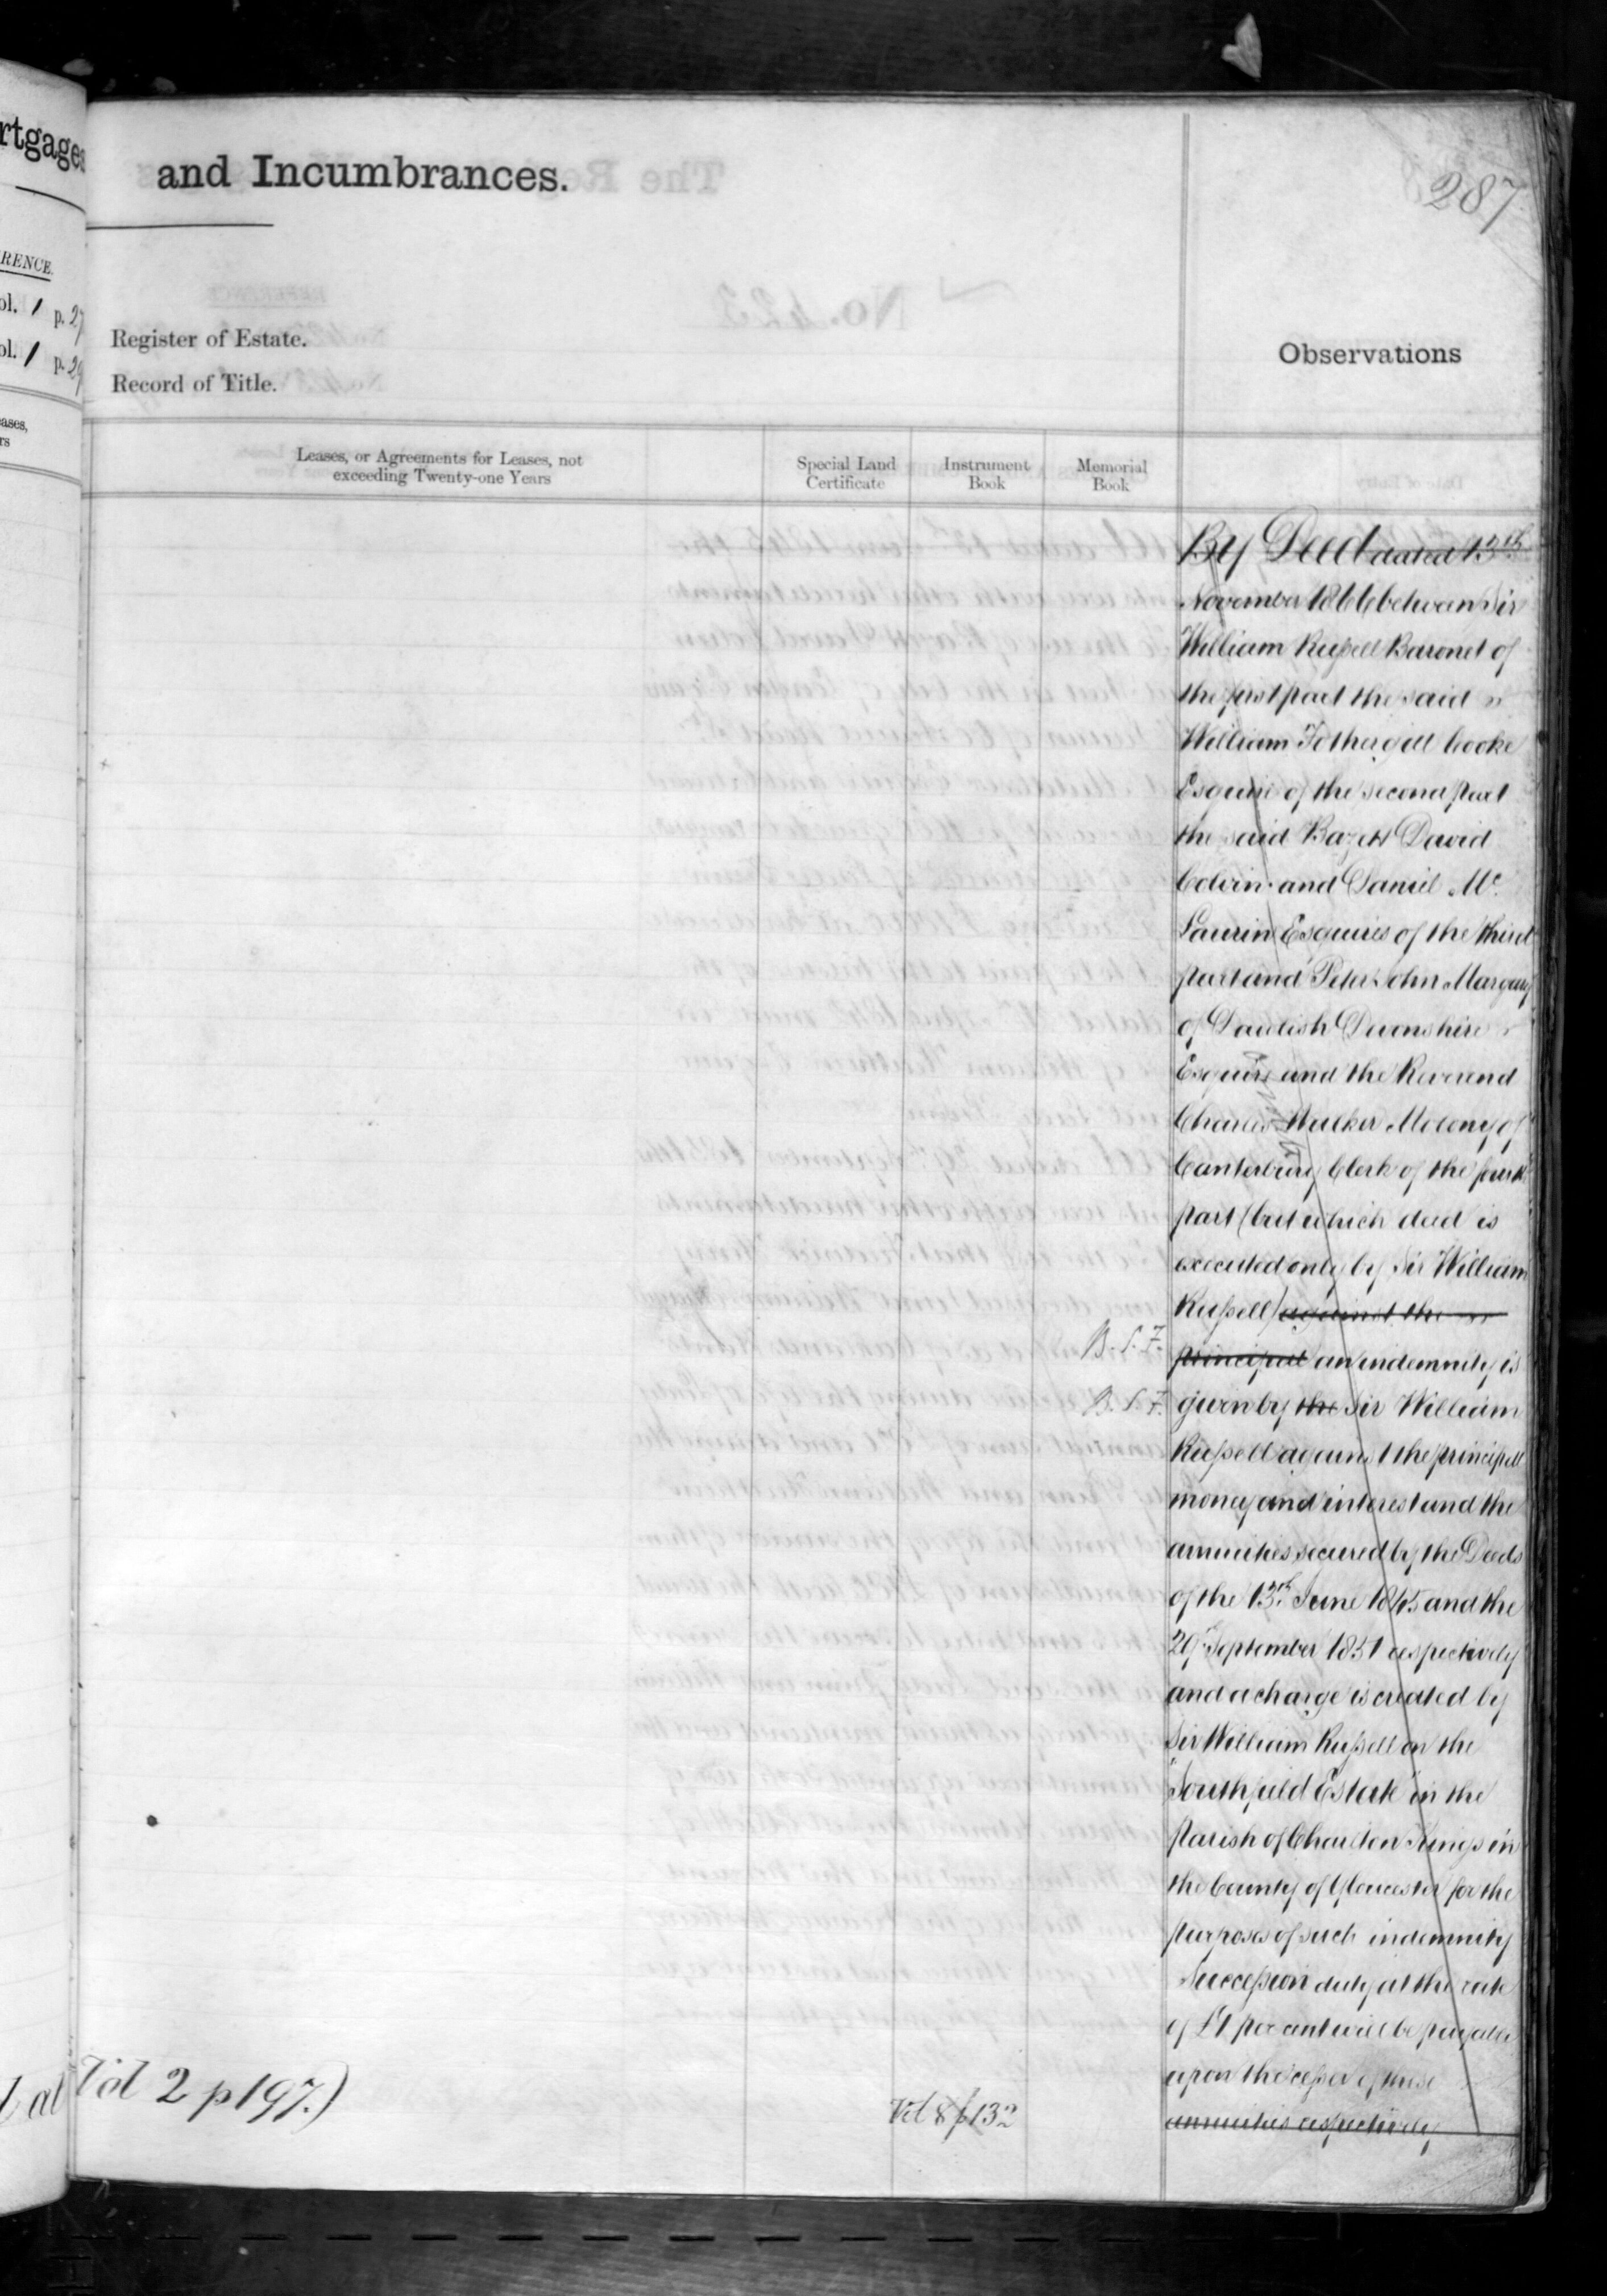 rtgages
RENCE.
ol. 1 p. 27
ol. 1 p. 29
eases,
rs
and Incumbrances.
287
Register of Estate.
Record of Title.
Observations
Leases, or Agreements for Leases, not
exceeding Twenty-one Years
Special Land
Certificate
Instrument
Book
Memorial
Book
By Deed dated 13th
November 1866 between Sir
William Russell Baronet of
the first part the said
William Fothergill Cooke
Esquire of the second part
the said Bazett David
Colvin and Daniel Mc
Laurin Esquires of the third
part and Peter John Margary
of Dawlish Devonshire
Esquire and the Reverend
Charles Walker Molony of
Canterbury Clerk of the fourth
part (but which deed is
executed only by Sir William
Russell) against the
B. S. F. principal an indemnity is
B. S. F. given by the Sir William
Russell against the principal
money and interest and the
annuities secured by the Deeds
of the 13th June 1845 and the
29 September 1851 respectively
and a charge is created by
Sir William Russell on the
Southfield Estate in the
Parish of Charlton Kings in
the County of Gloucester for the
purposes of such indemnity
Succession duty at the rate
of £1 per cent will be payable
upon the cesser of these
annuities respectively
Vol 2 p 197.)
Vol 8 p 132